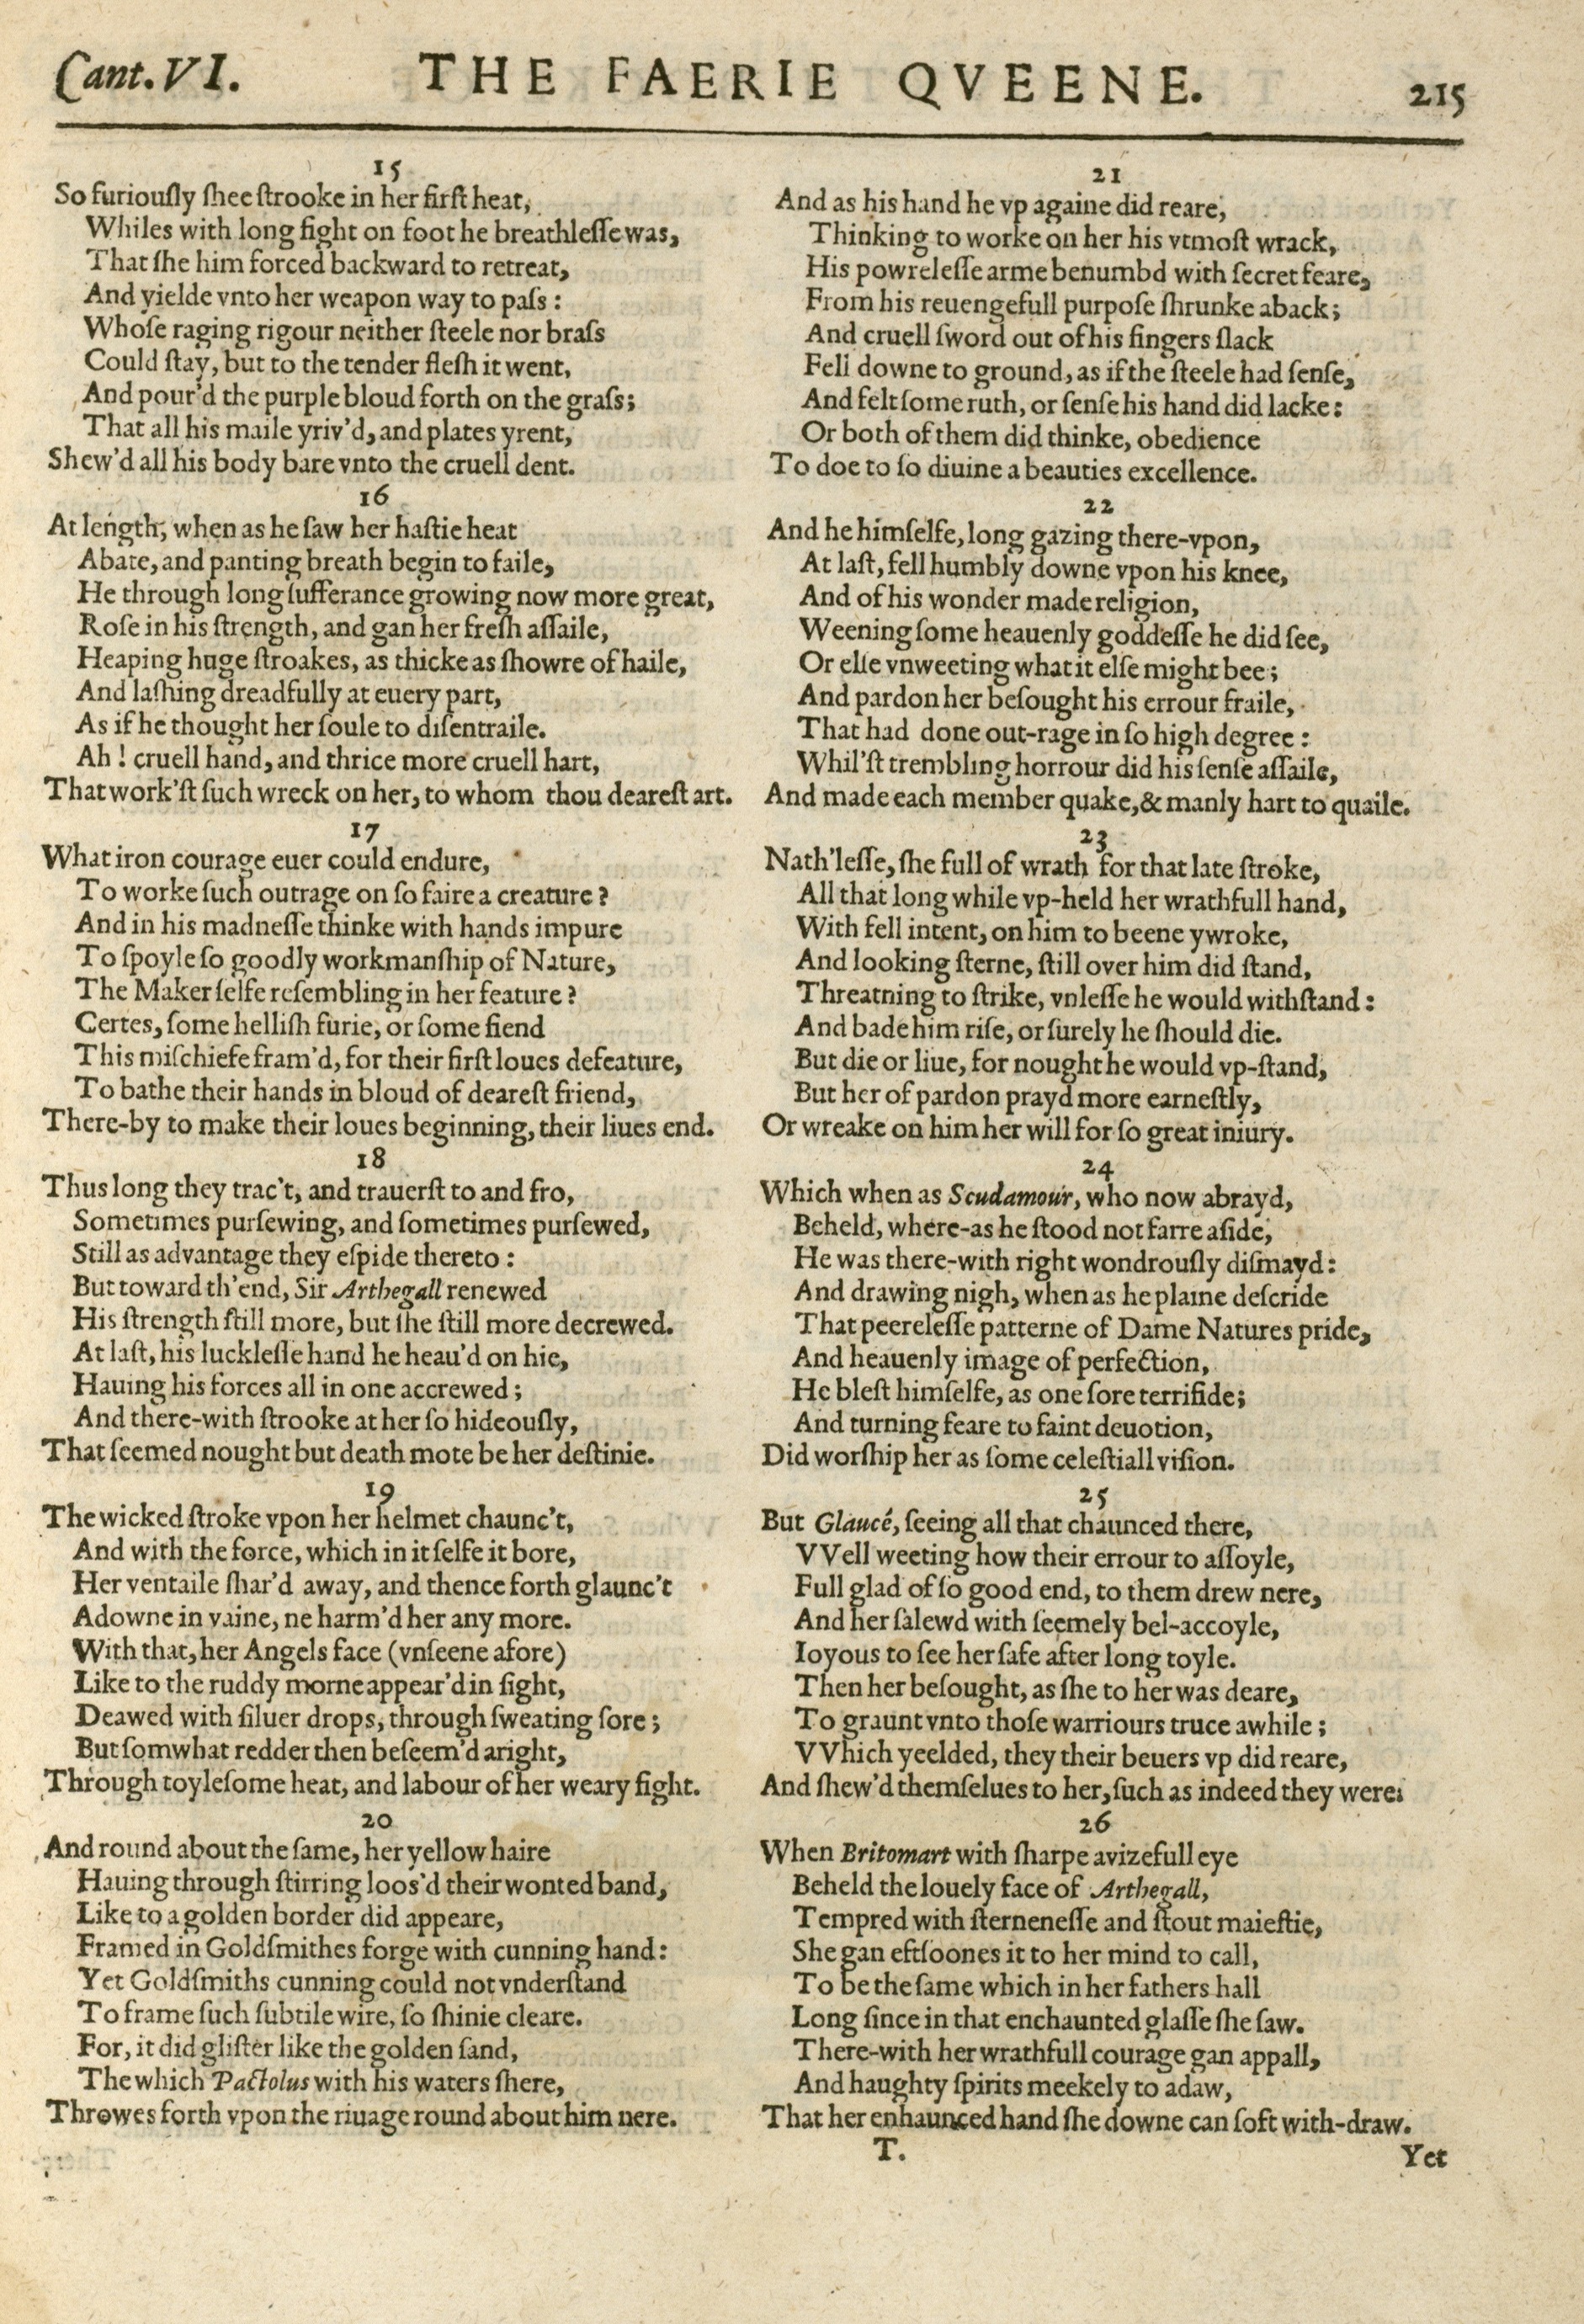 Cant. VI.
THE FAERIE QVEENE.
215
15
So furiouſly ſhee ſtrooke in her firſt heat,
Whiles with long fight on foot he breathleſſe was,
That ſhe him forced backward to retreat,
And yielde vnto her weapon way to paſs:
Whoſe raging rigour neither ſteele nor braſs
Could ſtay, but to the tender fleſh it went,
And pour'd the purple bloud forth on the graſs;
That all his maile yriv'd, and plates yrent,
Shew'd all his body bare vnto the cruell dent.
16
At length, when as he ſaw her haſtie heat
Abate, and panting breath begin to faile,
He through long ſufferance growing now more great,
Roſe in his ſtrength, and gan her freſh aſſaile,
Heaping huge ſtroakes, as thicke as ſhowre of haile,
And laſhing dreadfully at euery part,
As if he thought her ſoule to diſentraile.
Ah! cruell hand, and thrice more cruell hart,
That work'ſt ſuch wreck on her, to whom thou deareſt art.
17
What iron courage euer could endure,
To worke ſuch outrage on ſo faire a creature?
And in his madneſſe thinke with hands impure
To ſpoyle ſo goodly workmanſhip of Nature,
The Maker ſelfe reſembling in her feature?
Certes, ſome helliſh furie, or ſome fiend
This miſchiefe fram'd, for their firſt loues defeature,
To bathe their hands in bloud of deareſt friend,
There-by to make their loues beginning, their liues end.
18
Thus long they trac't, and trauerſt to and fro,
Sometimes purſewing, and ſometimes purſewed,
Still as advantage they eſpide thereto:
But toward th'end, Sir Arthegall renewed
His ſtrength ſtill more, but ſhe ſtill more decrewed.
At laſt, his luckleſſe hand he heau'd on hie,
Hauing his forces all in one accrewed;
And there-with ſtrooke at her ſo hideouſly,
That ſeemed nought but death mote be her deſtinie.
19
The wicked ſtroke vpon her helmet chaunc't,
And with the force, which in it ſelfe it bore,
Her ventaile ſhar'd away, and thence forth glaunc't
Adowne in vaine, ne harm'd her any more.
With that, her Angels face (vnſeene afore)
Like to the ruddy morne appear'd in ſight,
Deawed with ſiluer drops, through ſweating ſore;
But ſomwhat redder then beſeem'd aright,
Through toyleſome heat, and labour of her weary fight.
20
And round about the ſame, her yellow haire
Hauing through ſtirring loos'd their wonted band,
Like to a golden border did appeare,
Framed in Goldſmithes forge with cunning hand:
Yet Goldſmiths cunning could not vnderſtand
To frame ſuch ſubtile wire, ſo ſhinie cleare.
For, it did gliſter like the golden ſand,
The which Pactolus with his waters ſhere,
Throwes forth vpon the riuage round about him nere.
21
And as his hand he vp againe did reare,
Thinking to worke on her his vtmoſt wrack,
His powreleſſe arme benumbd with ſecret feare,
From his reuengefull purpoſe ſhrunke aback;
And cruell ſword out of his fingers ſlack
Fell downe to ground, as if the ſteele had ſenſe,
And felt ſome ruth, or ſenſe his hand did lacke:
Or both of them did thinke, obedience
To doe to ſo diuine a beauties excellence.
22
And he himſelfe, long gazing there-vpon,
At laſt, fell humbly downe vpon his knee,
And of his wonder made religion,
Weening ſome heauenly goddeſſe he did ſee,
Or elſe vnweeting what it elſe might bee;
And pardon her beſought his errour fraile,
That had done out-rage in ſo high degree:
Whil'ſt trembling horrour did his ſenſe aſſaile,
And made each member quake, & manly hart to quaile.
23
Nath'leſſe, ſhe full of wrath for that late ſtroke,
All that long while vp-held her wrathfull hand,
With fell intent, on him to beene ywroke,
And looking ſterne, ſtill over him did ſtand,
Threatning to ſtrike, vnleſſe he would withſtand:
And bade him riſe, or ſurely he ſhould die.
But die or liue, for nought he would vp-ſtand,
But her of pardon prayd more earneſtly,
Or wreake on him her will for ſo great iniury.
24
Which when as Scudamour, who now abrayd,
Beheld, where-as he ſtood not farre aſide,
He was there-with right wondrouſly diſmayd:
And drawing nigh, when as he plaine deſcride
That peereleſſe patterne of Dame Natures pride,
And heauenly image of perfection,
He bleſt himſelfe, as one ſore terrifide;
And turning feare to faint deuotion,
Did worſhip her as ſome celeſtiall viſion.
25
But Glaucé, ſeeing all that chaunced there,
VVell weeting how their errour to aſſoyle,
Full glad of ſo good end, to them drew nere,
And her ſalewd with ſeemely bel-accoyle,
Ioyous to ſee her ſafe after long toyle.
Then her beſought, as ſhe to her was deare,
To graunt vnto thoſe warriours truce awhile;
VVhich yeelded, they their beuers vp did reare,
And ſhew'd themſelues to her, ſuch as indeed they were:
26
When Britomart with ſharpe avizefull eye
Beheld the louely face of Arthegall,
Tempred with ſterneneſſe and ſtout maieſtie,
She gan eftſoones it to her mind to call,
To be the ſame which in her fathers hall
Long ſince in that enchaunted glaſſe ſhe ſaw.
There-with her wrathfull courage gan appall,
And haughty ſpirits meekely to adaw,
That her enhaunced hand ſhe downe can ſoft with-draw.
T.
Yet